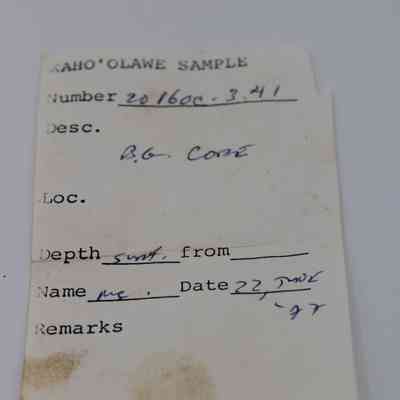 KAHO'OLAWE SAMPLE
Number 20 160c - 3.41
Desc.
B.G. CORE
Loc.
Depth surf. from
Name Date 22, JUNE
Remarks